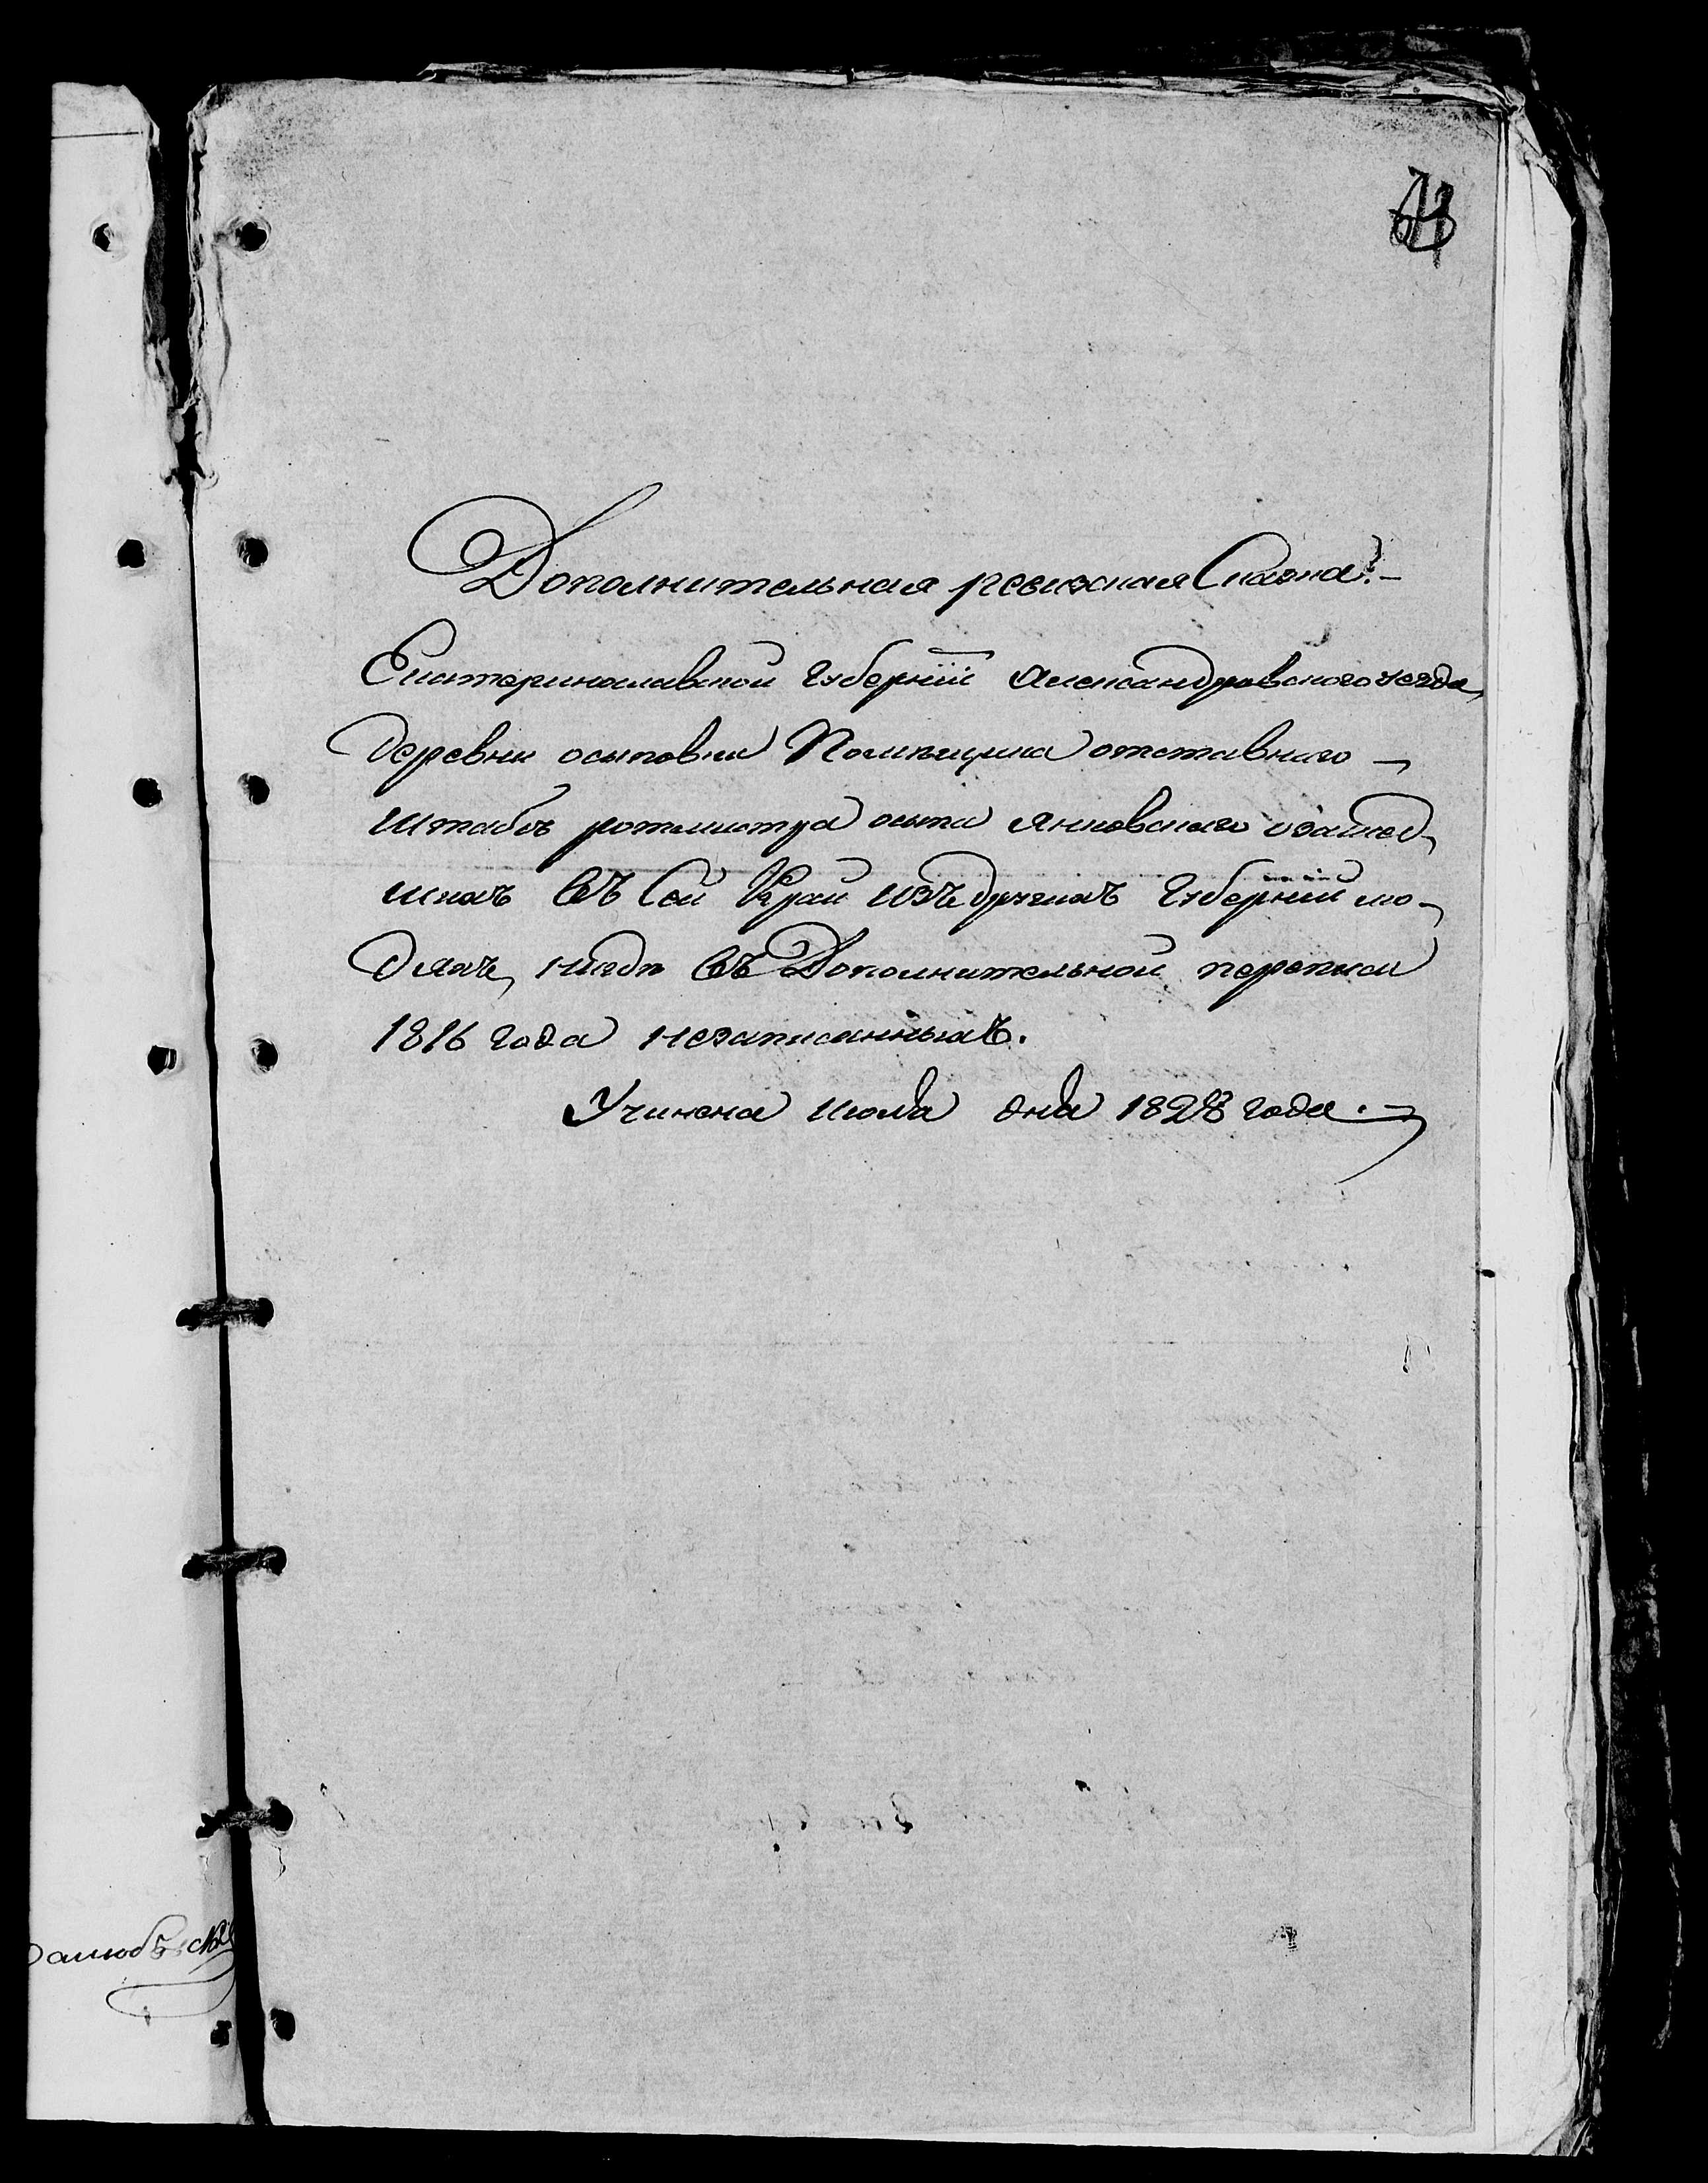 Дополнительная ревизская Сказка.
Екатеринославской губернiи Александровского уезда
деревни осиповки Помещика отставнаго
Штабъ ротмистра осипа Янковскаго озашед-
шихъ въ Сей Край изъ другихъ губернiи лю-
дяхъ, нигде въ Дополнительной переписи
1816 года незаписанныхъ.
Учинена июля дня 1828 года.